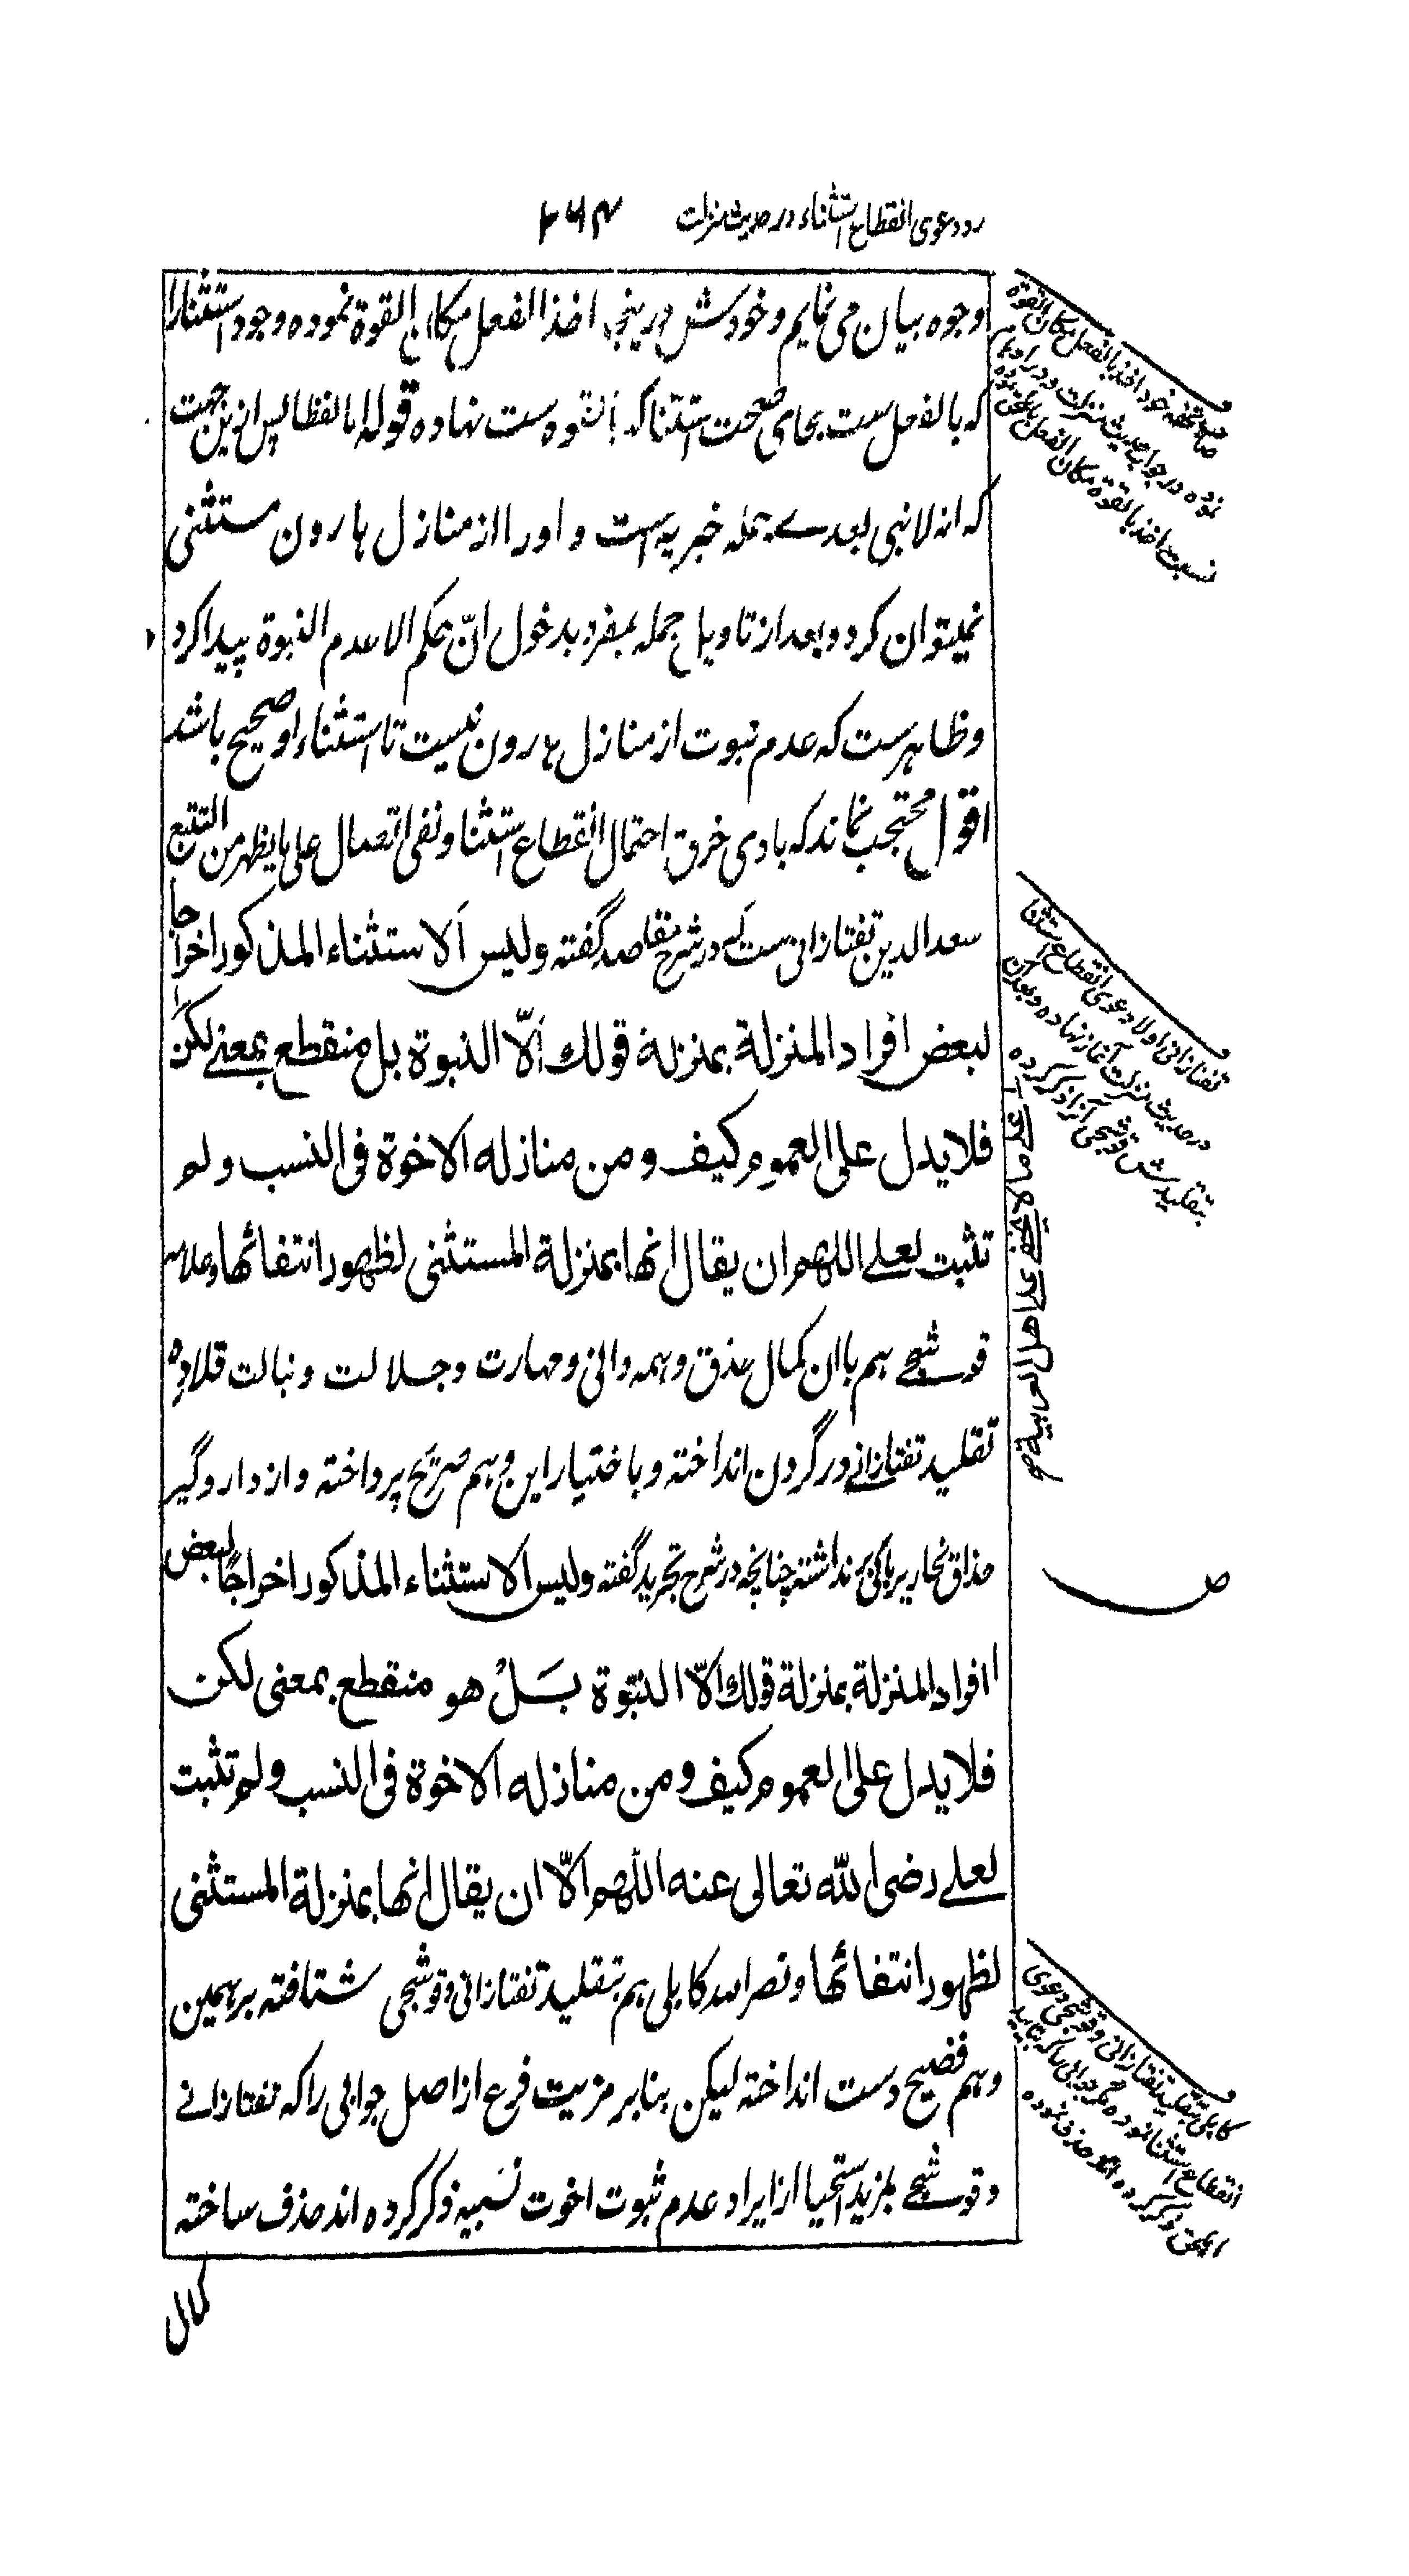 رد دعوی انقطاع استثناء در حدیث منزلت ۲۶۴
وجوه بیان می نمایم و خودش درینجا اخذ الفعل مکان القوة نموده وجود استثنارا
که بالفعل ست بجای صحت استثنا که بالقوه ست نهاده قوله اما لفظا پس ازین جهت
که انه لا نبی بعدے جمله خبریه است و اورا از منازل هارون مستثنی
نمیتوان کرد و بعد از تاویل جمله بمفرد بدخول انّ حکم الا عدم النبوة پیدا کرد
و ظاهرست که عدم نبوت از منازل هارون نیست تا استثناء او صحیح باشد
اقول محتجب نماند که بادی خرق احتمال انقطاع استثنا و نفی اتصال علی ما یظهر من التتبع
سعد الدین تفتازانی ست که در شرح مقاصد گفته ولیس الاستثناء المذکور اخراجا
لبعض افراد المنزلة بمنزلة قولك الّا النبوة بل منقطع بمعنے لكن
فلا یدل علی العموم کیف و من منازله الاخوة فی النسب و لم
تثبت لعلے اللهم ان یقال انها بمنزلة المستثنی لظهور انتفائها وعلامه
قوشجے هم با ان کمال حذق و همه دانی و مهارت و جلالت و نبالت قلاده
تقلید تفتازانے در گردن انداخته و باختیار این وهم صریح پرداخته و از دار و گیر
حذاق نحاریر باکی بر نداشته چنانچه در شرح تجرید گفته ولیس الاستثناء المذکور اخراجًا لبعض
افراد المنزلة بمنزلة قولك الّا النبّوة بَلْ هو منقطع بمعنی لکن
فلا یدل علی العموم کیف و من منازله الاخوة فی النسب و لم تثبت
لعلے رضی الله تعالی عنه اللهم الّا ان یقال انها بمنزلة المستثنی
لظهور انتفائها و نصر الله کابلی هم بتقلید تفتازانی و قوشجی شتافته بر همین
وهم فضیح دست انداخته لیکن بنابر مزیت فرع از اصل جوابی را که تفتازانے
و قوشجے بمزید استحیا از ایراد عدم ثبوت اخوت نسبیه ذکر کرده اند حذف ساخته
کمال
صاحب تحفه خود اخذ بالفعل مکان القوة
نموده در جواب حدیث منزلت و در
نسبت اخذ بالقوة مکان الفعل
تفتازانی اولا دعوی انقطاع استثنا
در حدیث منزلت آغاز نهاده و بعد ازن
بتقلیدش قوشجی آنرا ذکر کرده
کابلی بتقلید تفتازانی و قوشجی دعوی
انقطاع استثنا نموده مگر جوابی را که
ذکر کرده اند حذف نموده